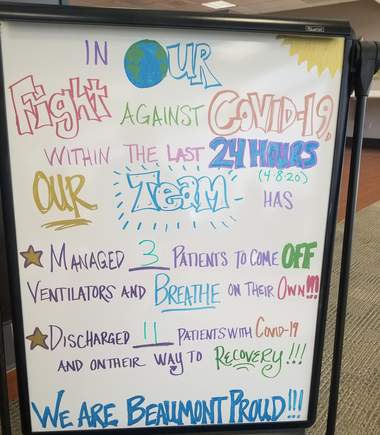 IN OUR
FIGHT AGAINST COVID-19,
WITHIN THE LAST 24 HOURS
(4-8-20)
OUR TEAM HAS
MANAGED 3 PATIENTS TO COME OFF
VENTILATORS AND BREATHE ON THEIR OWN!!!
DISCHARGED 11 PATIENTS WITH COVID-19
AND ON THEIR WAY TO RECOVERY!!!
WE ARE BEAUMONT PROUD!!!